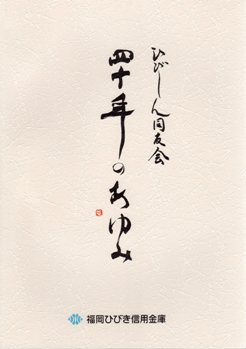 ひびしん同友会
四十年のあゆみ
福岡ひびき信用金庫